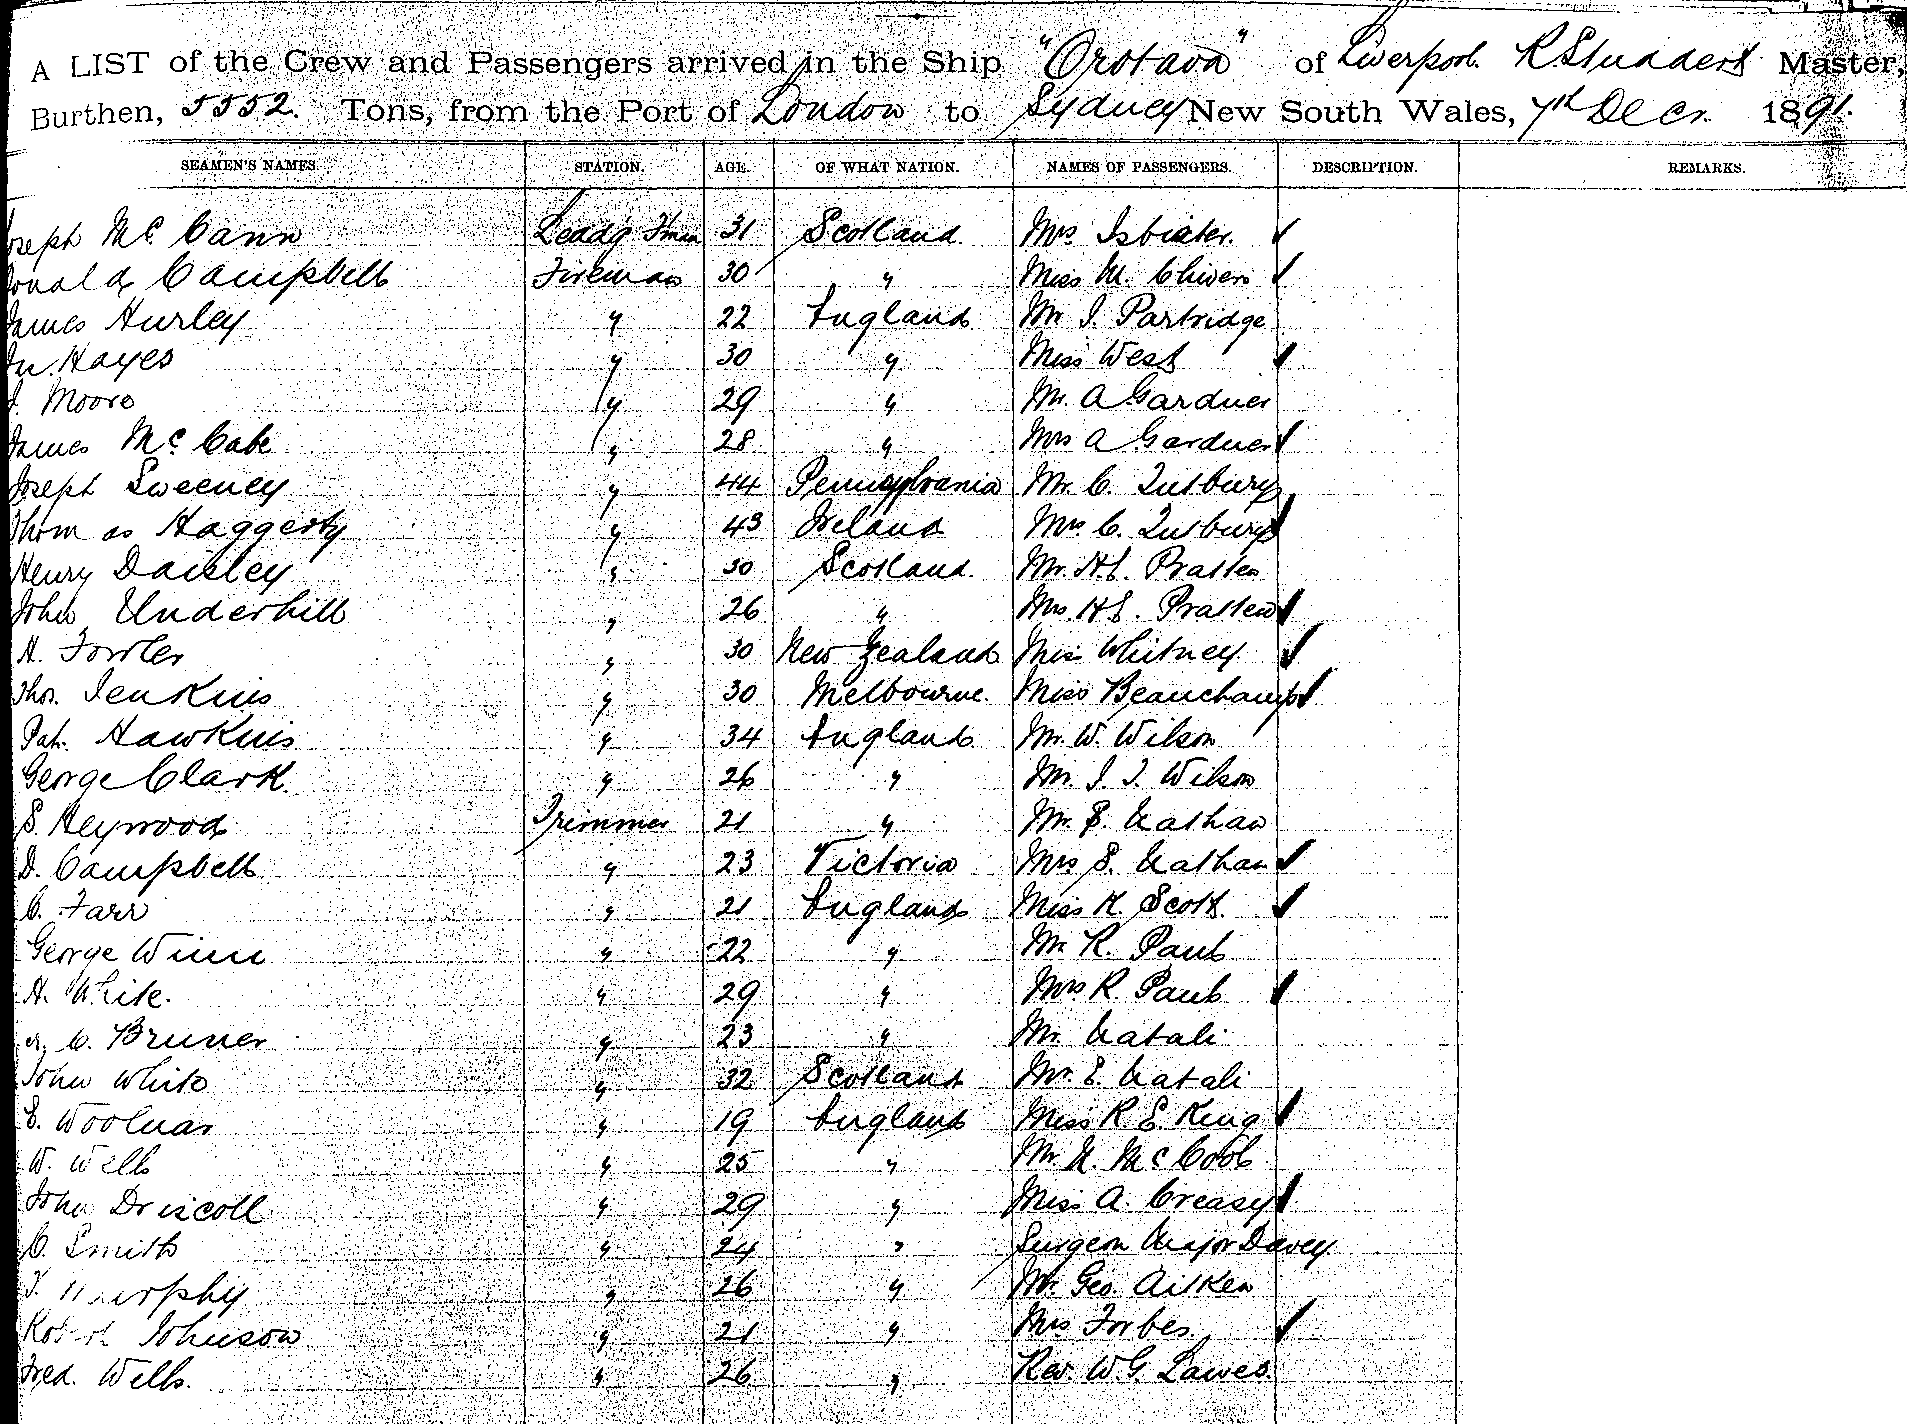 A LIST of the Crew and Passengers arrived in the Ship "Orotava" of Liverpool. R Studdert Master,
Burthen, 5552. Tons, from the Port of London to Sydney New South Wales, 7th Decr. 1891.
SEAMEN'S NAMES. STATION. AGE. OF WHAT NATION. NAMES OF PASSENGERS. DESCRIPTION. REMARKS.
Joseph McCann Leadg Fman 31 Scotland. Mrs Isbister. ✓
Donald Campbell Fireman 30 " Miss M. Chivers ✓
James Hurley " 22 England Mr J. Partridge
Hayes " 30 " Miss West ✓
J. Moore " 29 " Mr. A Gardner
James McCabe " 28 " Mrs A Gardner ✓
Joseph Sweeney " 44 Pennsylvania Mr. C.
Thomas Haggerty " 43 Ireland Mrs C. ✓
Henry Daisley " 30 Scotland. Mr. H.E. Pratten
John Underhill " 26 " Mrs. H.E. Pratten ✓
H. Fowler " 30 New Zealand Miss Whitney ✓
Thos. Jenkins " 30 Melbourne. Miss Beauchamp ✓
Pat. Hawkins " 34 England Mr. W. Wilson
George Clark. " 26 " Mr. J. J. Wilson
S. Heywood Trimmer 21 " Mr. S. Nathan
D. Campbell " 23 Victoria Mrs S. Nathan ✓
C. Farr " 21 England Miss K. Scott. ✓
George Winn " 22 " Mr. R. Paul
H. White. " 29 " Mrs R. Paul ✓
C. Bruner " 23 " Mr. Natali
John White " 32 Scotland Mr. E. Natali
E. Woolnar " 19 England Miss R E King ✓
W. Wells " 25 " Mr. N. McCool
John Driscoll " 29 " Miss A. Creasy ✓
C. Smith " 24 " Surgeon Major Davey
T. Murphy " 26 " Mr. Geo. Aitken
Robert Johnson " 21 " Mrs Forbes ✓
Fred. Wells. " 26 " Rev. W.G. Lawes.